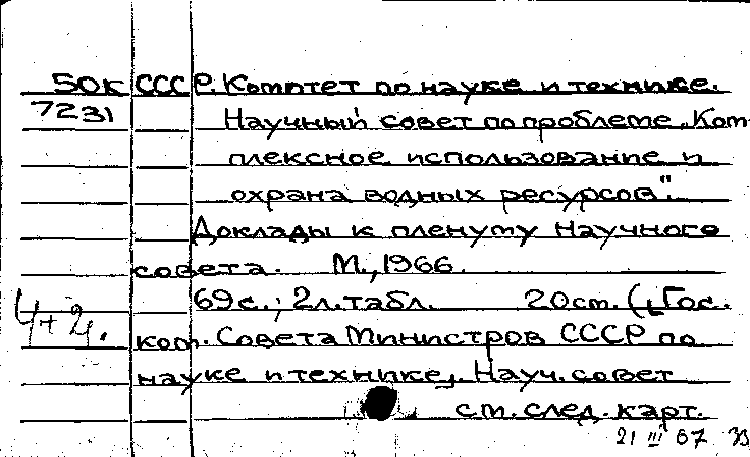 50К СССР. Комитет по науке и технике.
7231 Научный совет по проблеме „Ком-
плексное использование и
охрана водных ресурсов".
Доклады к пленуму Научного
совета. М., 1966.
69 с.; 2 л. табл. 20 см. („Гос.
ком. Совета Министров СССР по
науке и технике". Науч. совет
см. след. карт.
21 III 67